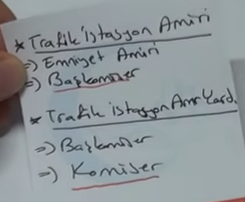 * Trafik istasyon Amiri
=) Emniyet Amiri
=) Başkomiser
* Trafik istasyon Amr Yard.
=) Başkomiser
=) Komiser